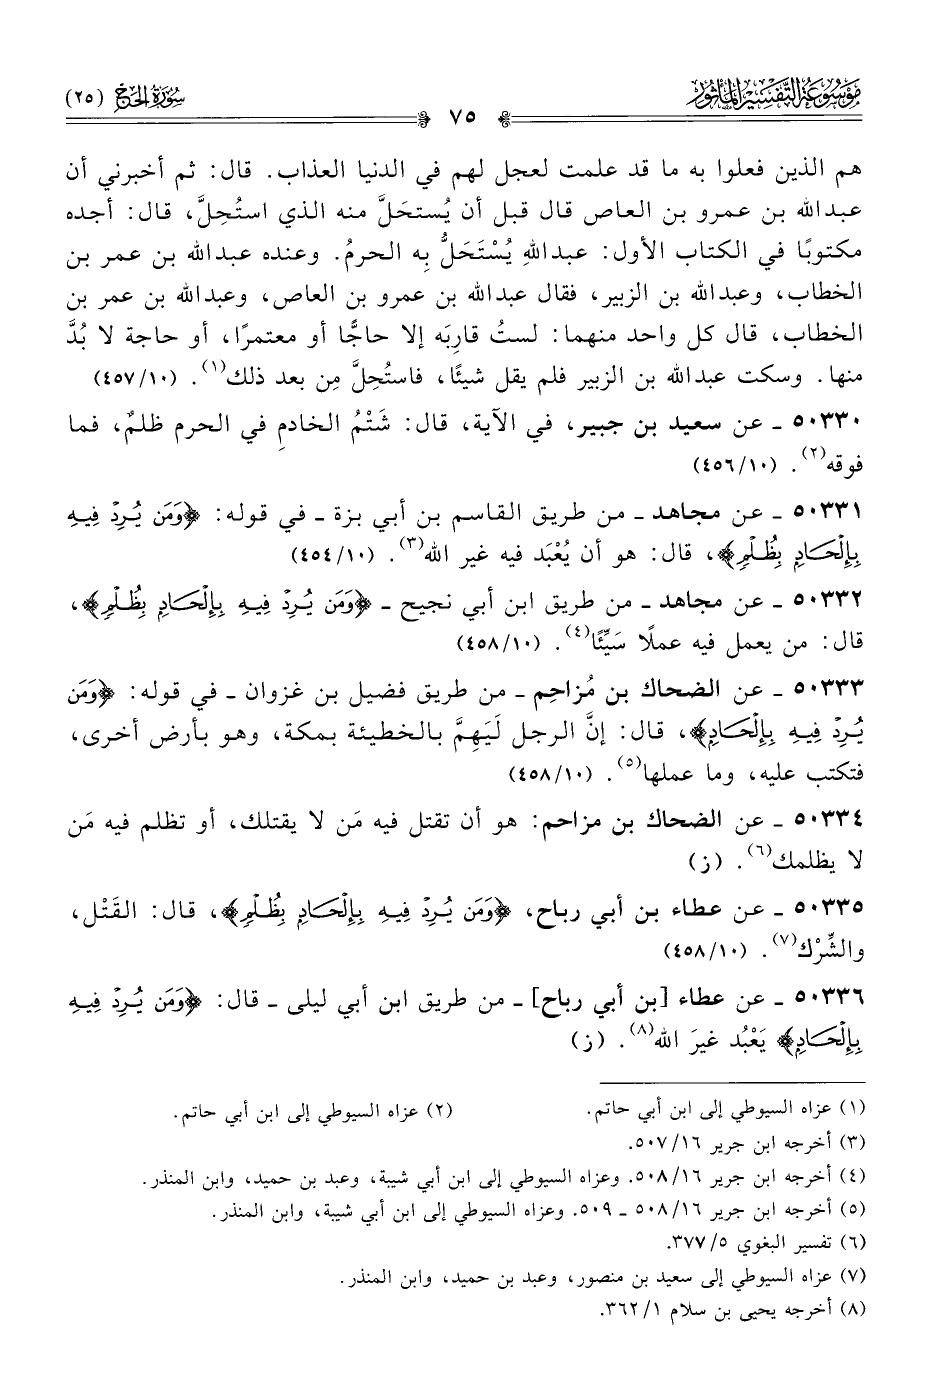 موسوعة التفسير المأثور
سورة الحج (٢٥)
٧٥
هم الذين فعلوا به ما قد علمت لعجل لهم في الدنيا العذاب. قال: ثم أخبرني أن
عبدالله بن عمرو بن العاص قال قبل أن يُستحَلَّ منه الذي استُحِلَّ، قال: أجده
مكتوبًا في الكتاب الأول: عبداللهِ يُسْتَحَلُّ بِه الحرمُ. وعنده عبدالله بن عمر بن
الخطاب، وعبدالله بن الزبير، فقال عبدالله بن عمرو بن العاص، وعبدالله بن عمر بن
الخطاب، قال كل واحد منهما: لستُ قارِبَه إلا حاجًّا أو معتمرًا، أو حاجة لا بُدَّ
منها. وسكت عبدالله بن الزبير فلم يقل شيئًا، فاستُحِلَّ مِن بعد ذلك(١). (٤٥٧/١٠)
٥٠٣٣٠ ـ عن سعيد بن جبير، في الآية، قال: شَتْمُ الخادمِ في الحرم ظلمٌ، فما
فوقه(٢). (٤٥٦/١٠)
٥٠٣٣١ ـ عن مجاهد ـ من طريق القاسم بن أبي بزة ـ في قوله: ﴿وَمَن يُرِدْ فِيهِ
بِإِلْحَادٍ بِظُلْمٍ﴾، قال: هو أن يُعْبَد فيه غير الله(٣). (٤٥٤/١٠)
٥٠٣٣٢ ـ عن مجاهد ـ من طريق ابن أبي نجيح ـ ﴿وَمَن يُرِدْ فِيهِ بِإِلْحَادٍ بِظُلْمٍ﴾،
قال: من يعمل فيه عملًا سَيِّئًا(٤). (٤٥٨/١٠)
٥٠٣٣٣ ـ عن الضحاك بن مُزاحِم ـ من طريق فضيل بن غزوان ـ في قوله: ﴿وَمَن
يُرِدْ فِيهِ بِإِلْحَادٍ﴾، قال: إنَّ الرجل لَيَهِمَّ بالخطيئة بمكة، وهو بأرض أخرى،
فتكتب عليه، وما عملها(٥). (٤٥٨/١٠)
٥٠٣٣٤ ـ عن الضحاك بن مزاحم: هو أن تقتل فيه مَن لا يقتلك، أو تظلم فيه مَن
لا يظلمك(٦). (ز)
٥٠٣٣٥ ـ عن عطاء بن أبي رباح، ﴿وَمَن يُرِدْ فِيهِ بِإِلْحَادٍ بِظُلْمٍ﴾، قال: القَتْل،
والشِّرْك(٧). (٤٥٨/١٠)
٥٠٣٣٦ ـ عن عطاء [بن أبي رباح] ـ من طريق ابن أبي ليلى ـ قال: ﴿وَمَن يُرِدْ فِيهِ
بِإِلْحَادٍ﴾ يَعْبُد غيرَ الله(٨). (ز)
(١) عزاه السيوطي إلى ابن أبي حاتم. (٢) عزاه السيوطي إلى ابن أبي حاتم.
(٣) أخرجه ابن جرير ٥٠٧/١٦.
(٤) أخرجه ابن جرير ٥٠٨/١٦. وعزاه السيوطي إلى ابن أبي شيبة، وعبد بن حميد، وابن المنذر.
(٥) أخرجه ابن جرير ٥٠٨/١٦ ـ ٥٠٩. وعزاه السيوطي إلى ابن أبي شيبة، وابن المنذر.
(٦) تفسير البغوي ٣٧٧/٥.
(٧) عزاه السيوطي إلى سعيد بن منصور، وعبد بن حميد، وابن المنذر.
(٨) أخرجه يحيى بن سلام ٣٦٢/١.